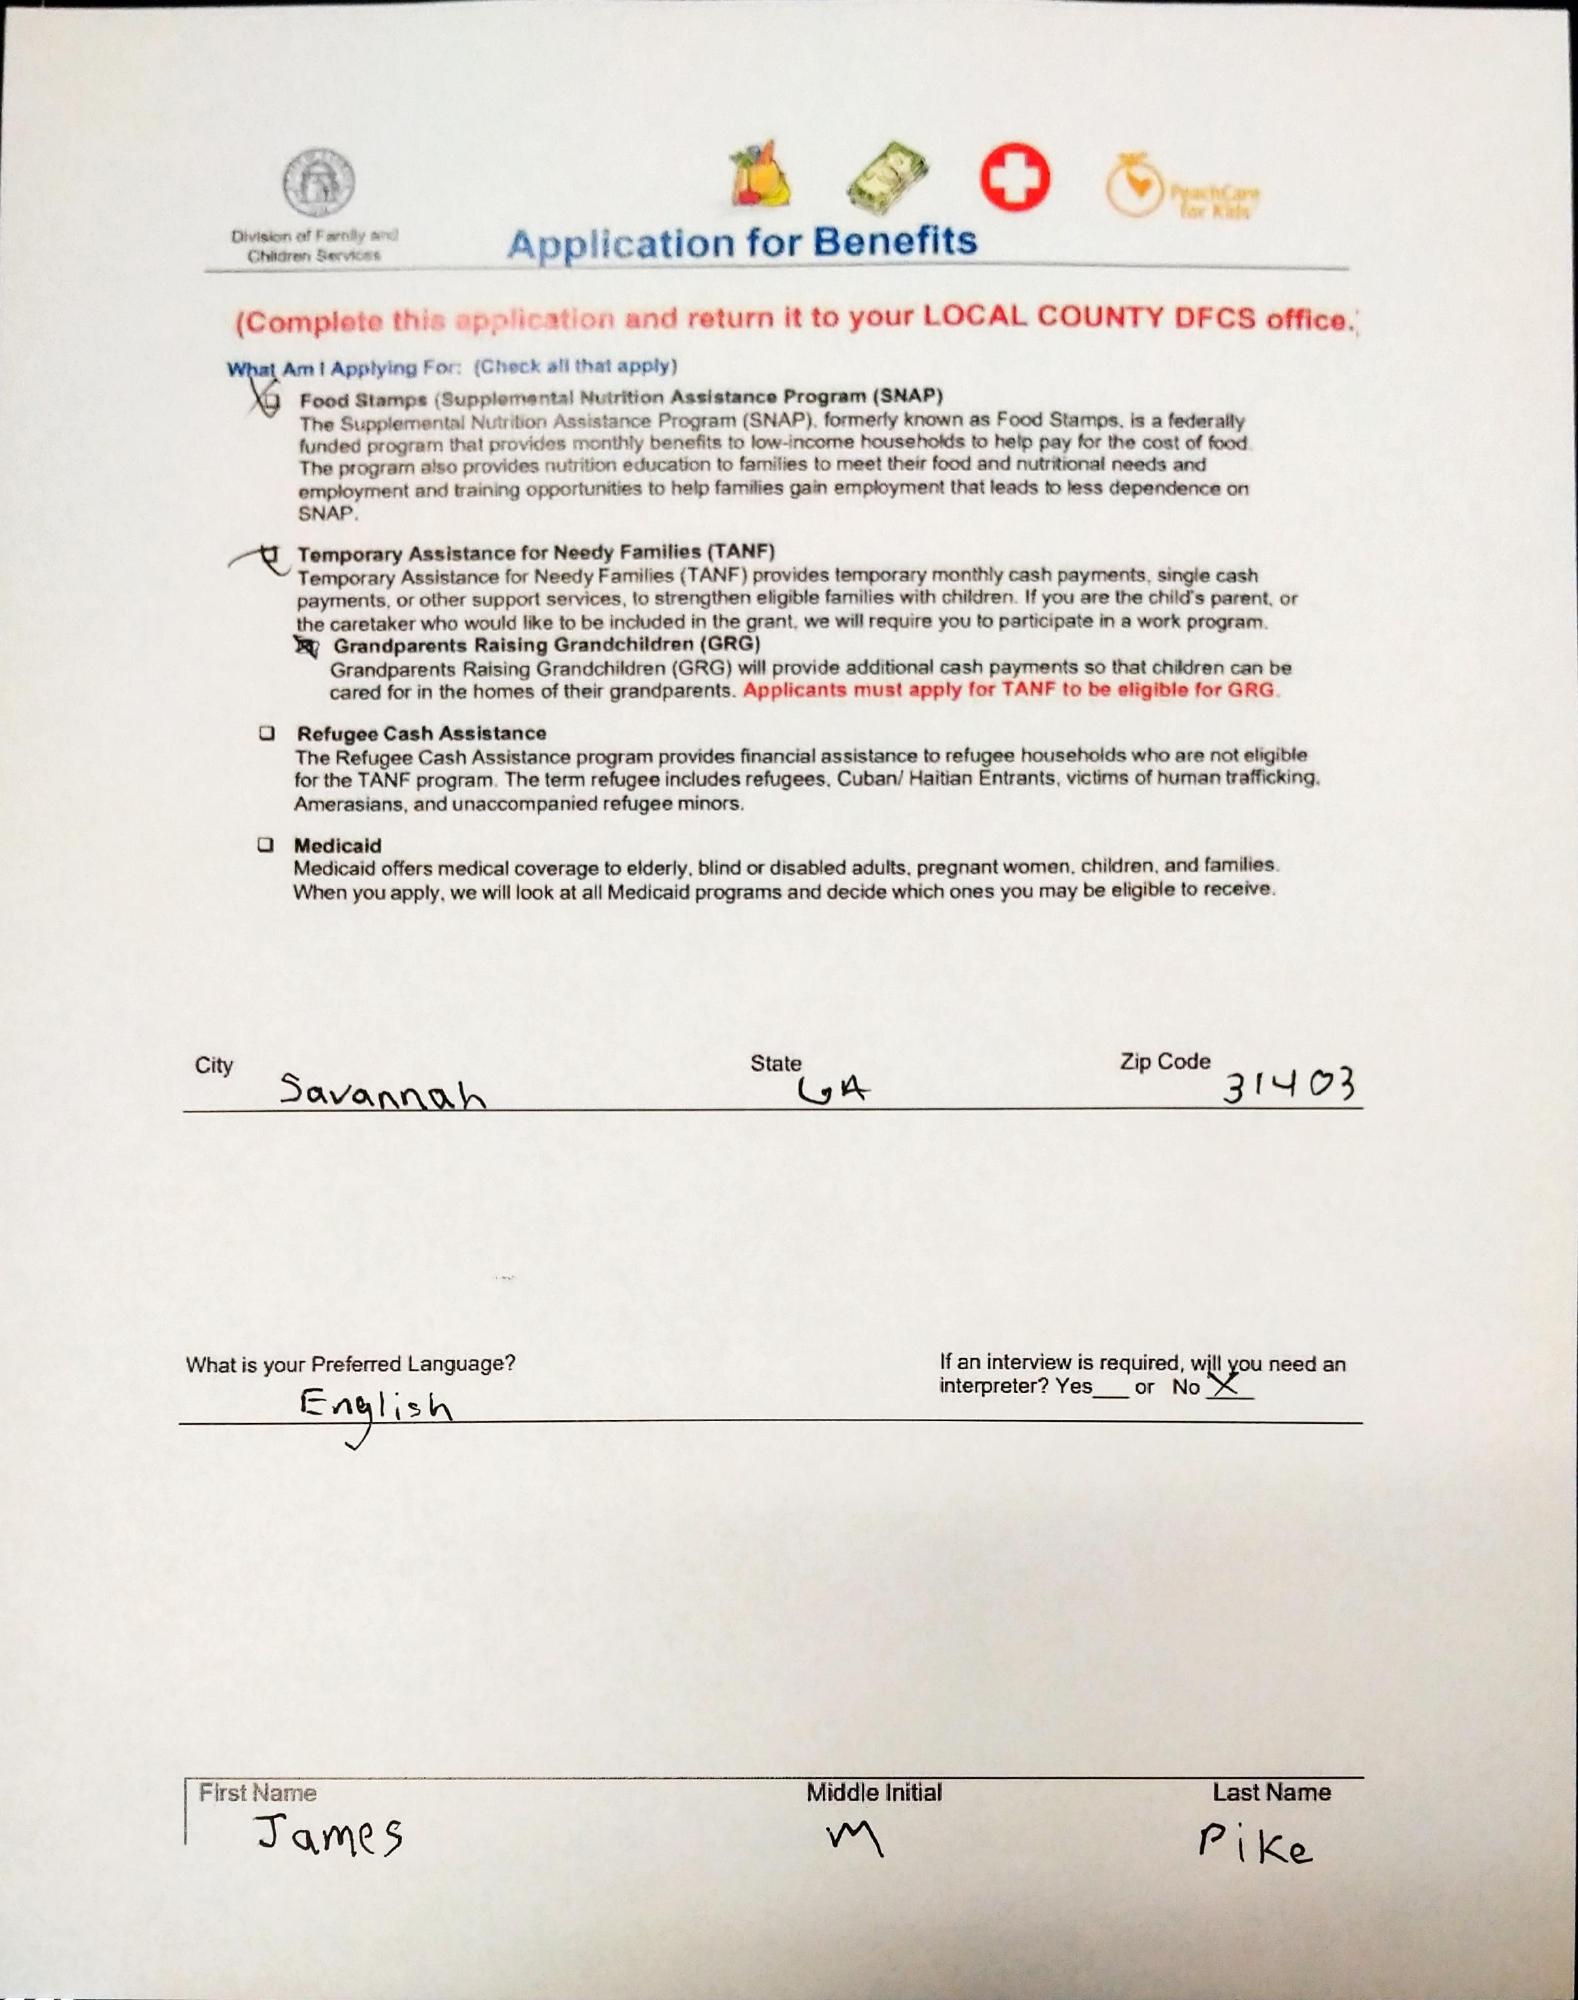 PeachCare
for Kids
Division of Family and
Children Services
Application for Benefits
(Complete this application and return it to your LOCAL COUNTY DFCS office.)
What Am I Applying For: (Check all that apply)
Food Stamps (Supplemental Nutrition Assistance Program (SNAP)
The Supplemental Nutrition Assistance Program (SNAP), formerly known as Food Stamps, is a federally
funded program that provides monthly benefits to low-income households to help pay for the cost of food.
The program also provides nutrition education to families to meet their food and nutritional needs and
employment and training opportunities to help families gain employment that leads to less dependence on
SNAP.
Temporary Assistance for Needy Families (TANF)
Temporary Assistance for Needy Families (TANF) provides temporary monthly cash payments, single cash
payments, or other support services, to strengthen eligible families with children. If you are the child's parent, or
the caretaker who would like to be included in the grant, we will require you to participate in a work program.
Grandparents Raising Grandchildren (GRG)
Grandparents Raising Grandchildren (GRG) will provide additional cash payments so that children can be
cared for in the homes of their grandparents. Applicants must apply for TANF to be eligible for GRG.
Refugee Cash Assistance
The Refugee Cash Assistance program provides financial assistance to refugee households who are not eligible
for the TANF program. The term refugee includes refugees, Cuban/ Haitian Entrants, victims of human trafficking,
Amerasians, and unaccompanied refugee minors.
Medicaid
Medicaid offers medical coverage to elderly, blind or disabled adults, pregnant women, children, and families.
When you apply, we will look at all Medicaid programs and decide which ones you may be eligible to receive.
City Savannah State GA Zip Code 31403
What is your Preferred Language? If an interview is required, will you need an
English interpreter? Yes___ or No X
First Name Middle Initial Last Name
James M Pike